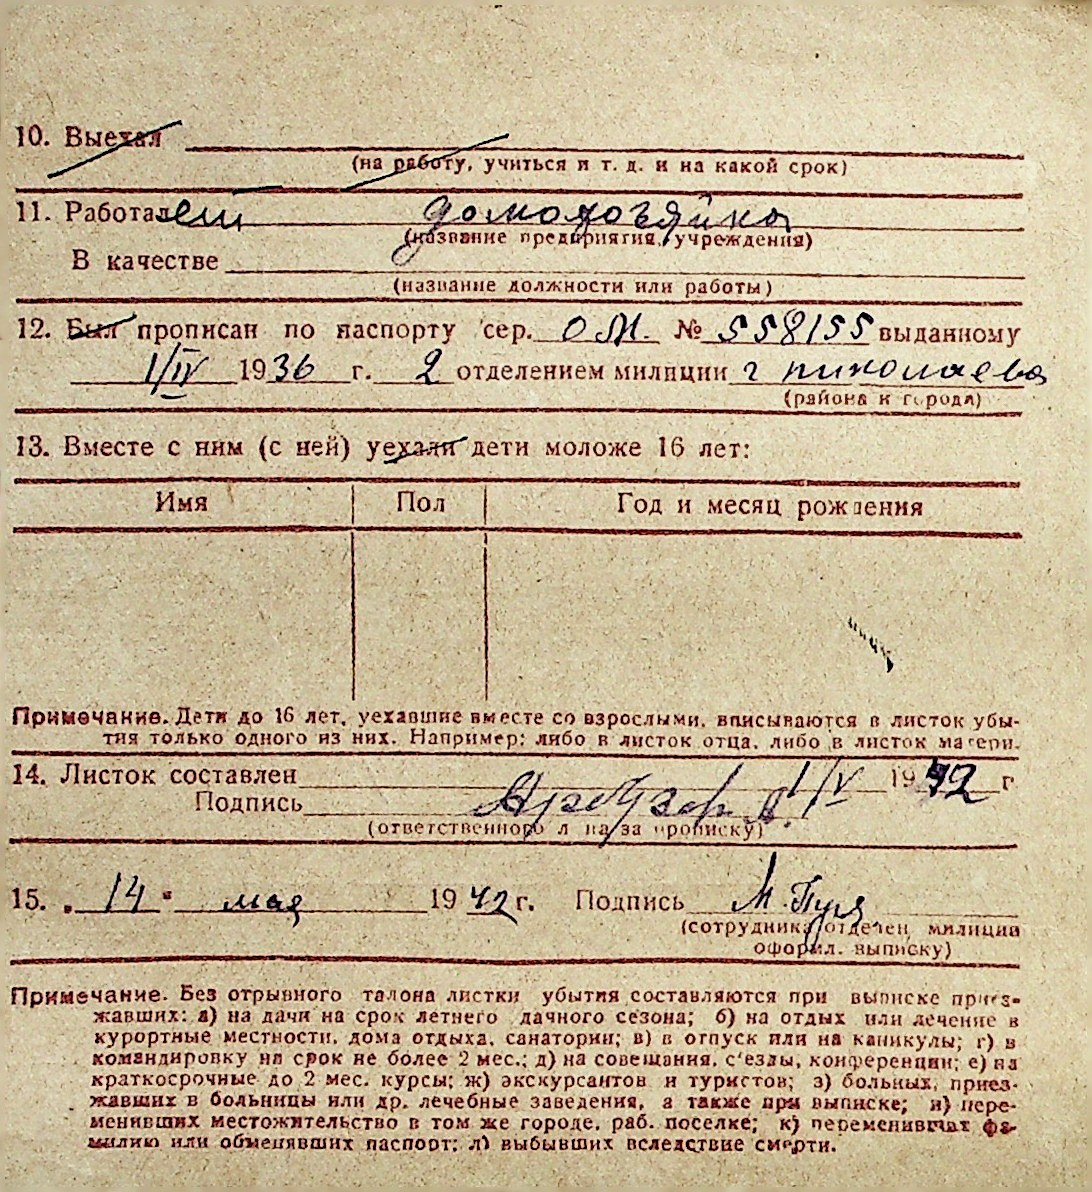 10. Выехал
(на работу, учиться и т. д. и на какой срок)
11. Работал домохозяйка
(название предприятия, учреждения)
В качестве
(название должности или работы)
12. Был прописан по паспорту сер. О М. № 558155 выданному
1/IV 1936 г. 2 отделением милиции г Николаева
(района и города)
13. Вместе с ним (с ней) уехали дети моложе 16 лет:
Имя Пол Год и месяц рождения
Примечание. Дети до 16 лет, уехавшие вместе со взрослыми, вписываются в листок убы-
тия только одного из них. Например: либо в листок отца, либо в листок матери.
14. Листок составлен 1/V 1942 г
Подпись
(ответственного л на за прописку)
15. „14" мая 1942 г. Подпись М.
(сотрудника отделен милиции
оформ. выписку)
Примечание. Без отрывного талона листки убытия составляются при выписке приез-
жавших: а) на дачи на срок летнего дачного сезона; б) на отдых или лечение в
курортные местности, дома отдыха, санатории; в) в отпуск или на каникулы; г) в
командировку на срок не более 2 мес.; д) на совещания, с'езды, конференции; е) на
краткосрочные до 2 мес. курсы; ж) экскурсантов и туристов; з) больных, приез-
жавших в больницы или др. лечебные заведения, а также при выписке; и) пере-
менивших местожительство в том же городе, раб. поселке; к) переменивших фа-
милию или обменявших паспорт; л) выбывших вследствие смерти.